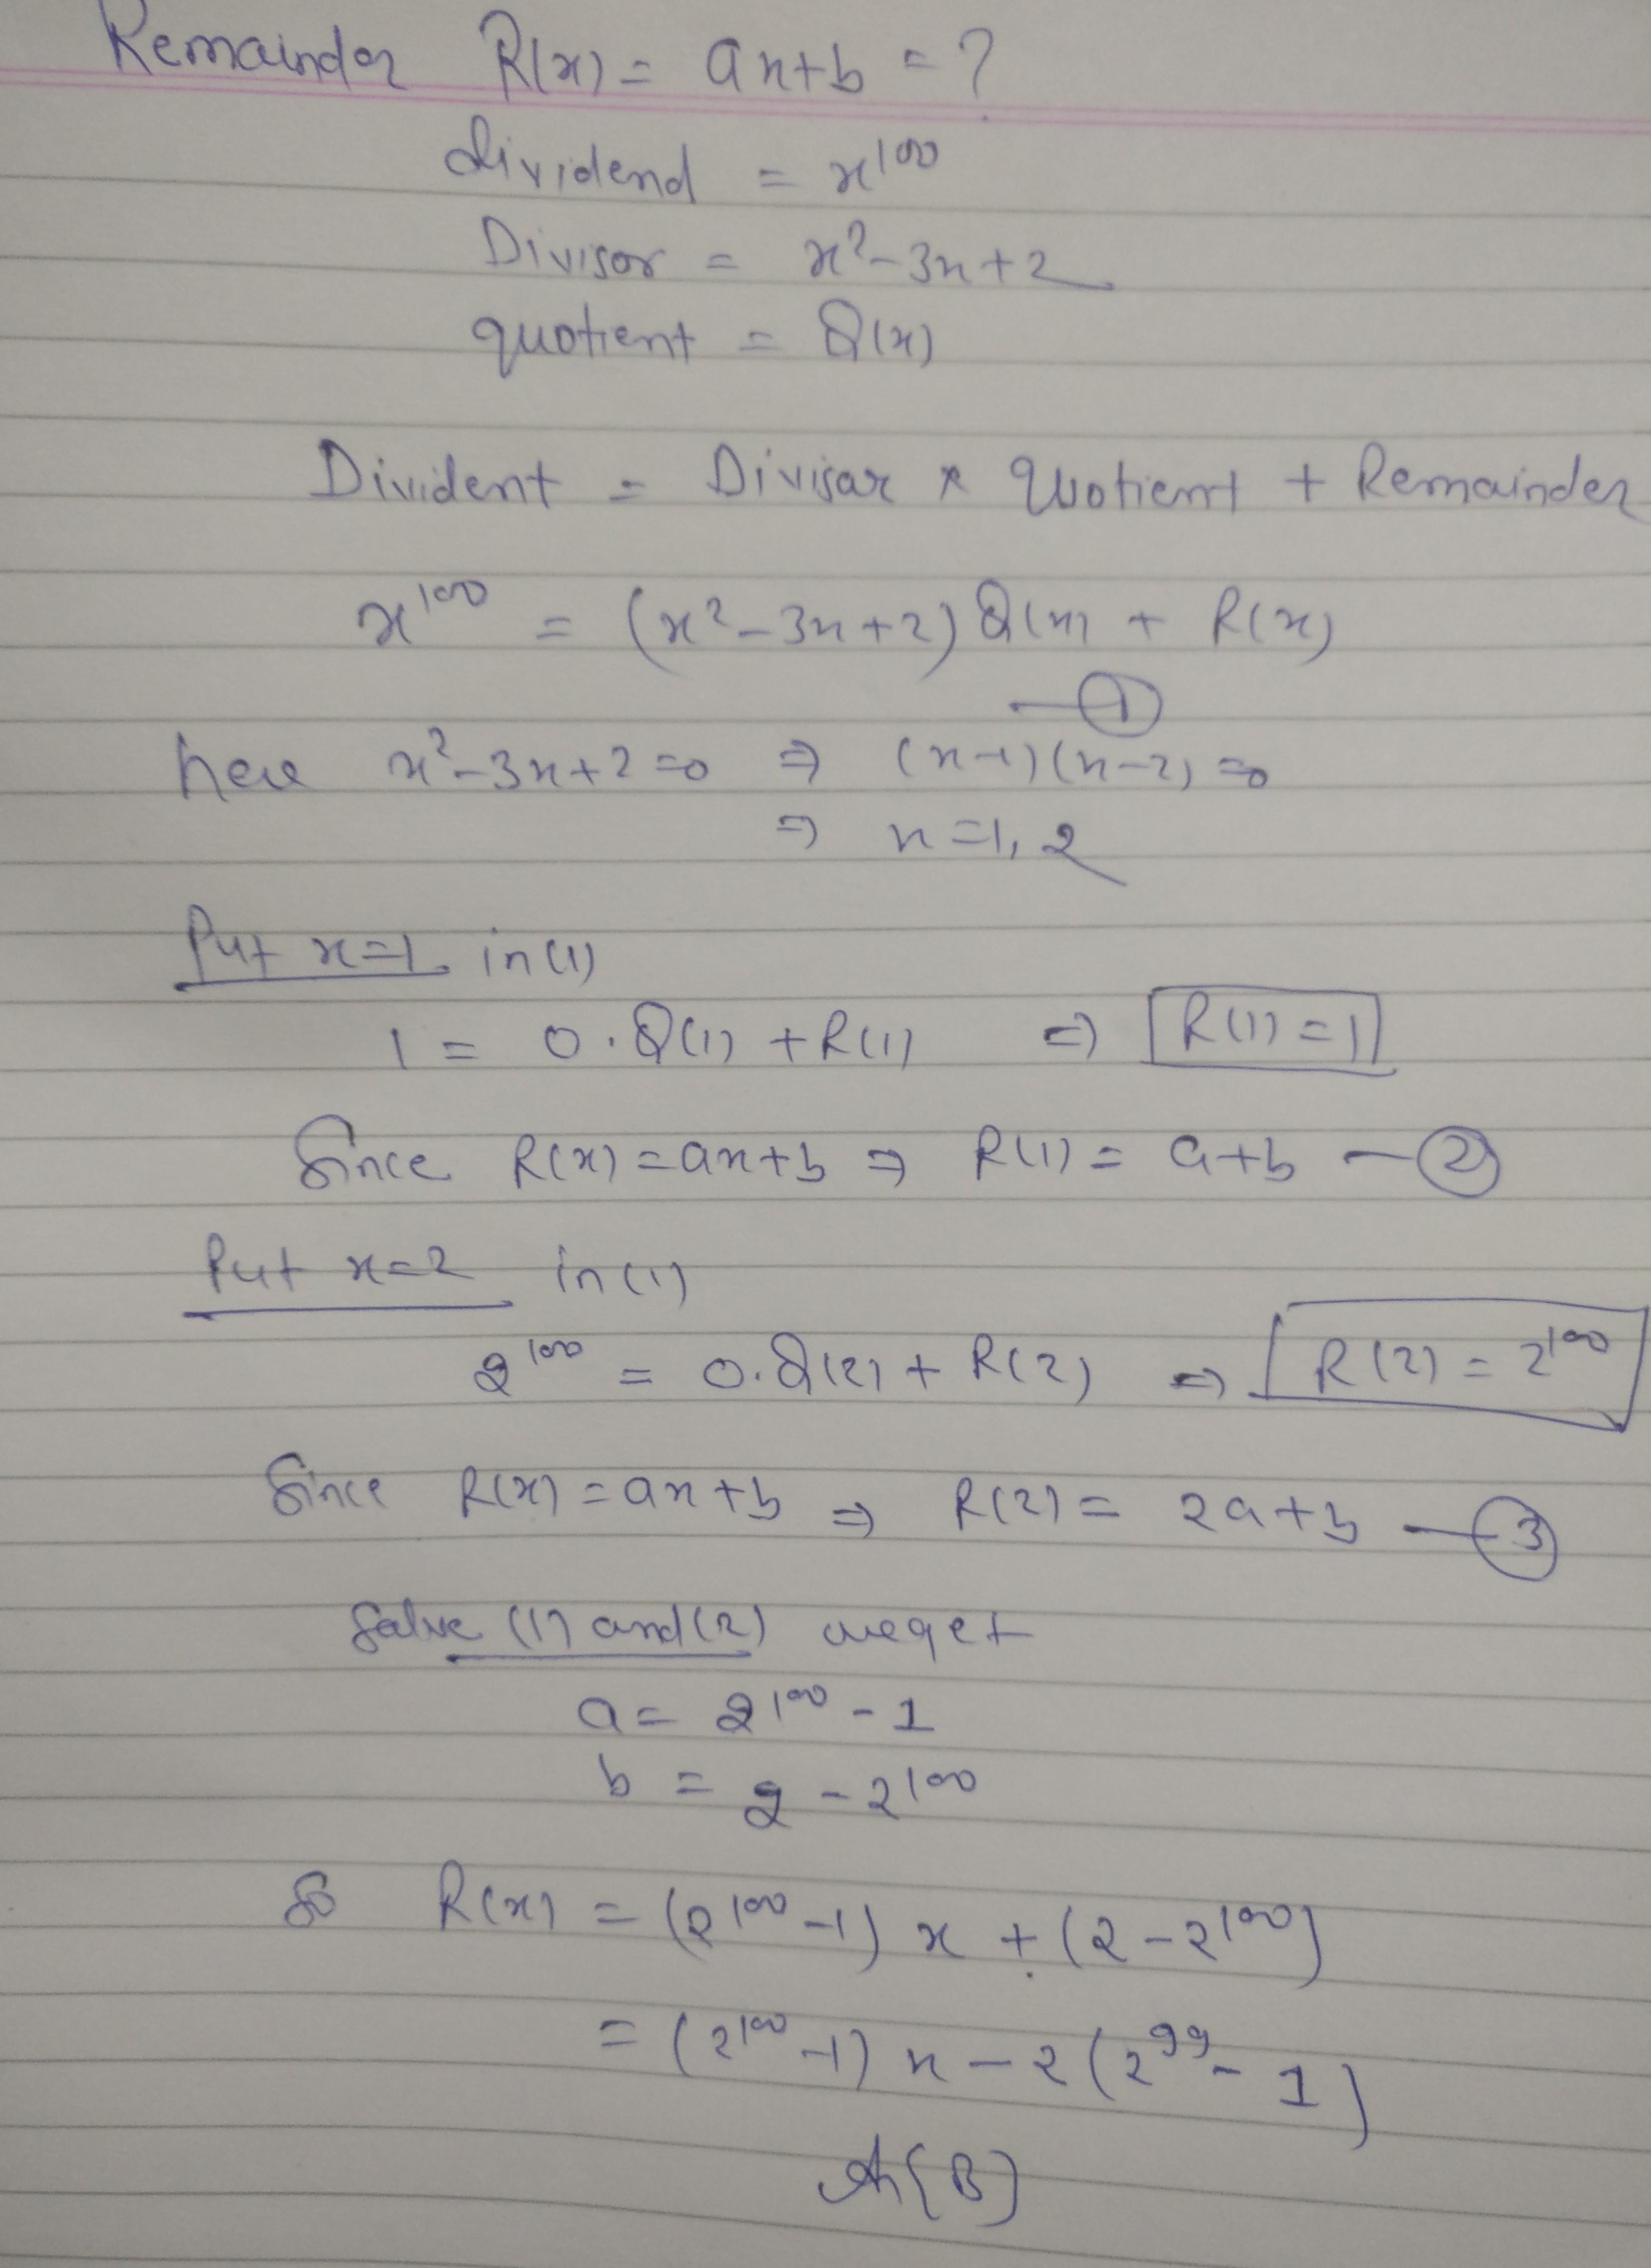 Remainder R(x) = ax+b = ?
dividend = x^100
Divisor = x²-3x+2
quotient = Q(x)
Divident = Divisar × Quotient + Remainder
x^100 = (x²-3x+2) Q(x) + R(x)
—①
here x²-3x+2=0 ⇒ (x-1)(x-2)=0
⇒ x=1, 2
Put x=1 in(1)
1 = 0.Q(1) + R(1) ⇒ R(1)=1
Since R(x)=ax+b ⇒ R(1) = a+b —②
Put x=2 in(1)
2^100 = 0.Q(2) + R(2) ⇒ R(2) = 2^100
Since R(x)=ax+b ⇒ R(2) = 2a+b —③
Salve (1) and (2) we get
a = 2^100 - 1
b = 2 - 2^100
So R(x) = (2^100 -1) x + (2-2^100)
= (2^100 -1) x - 2 (2^99 - 1)
(B)